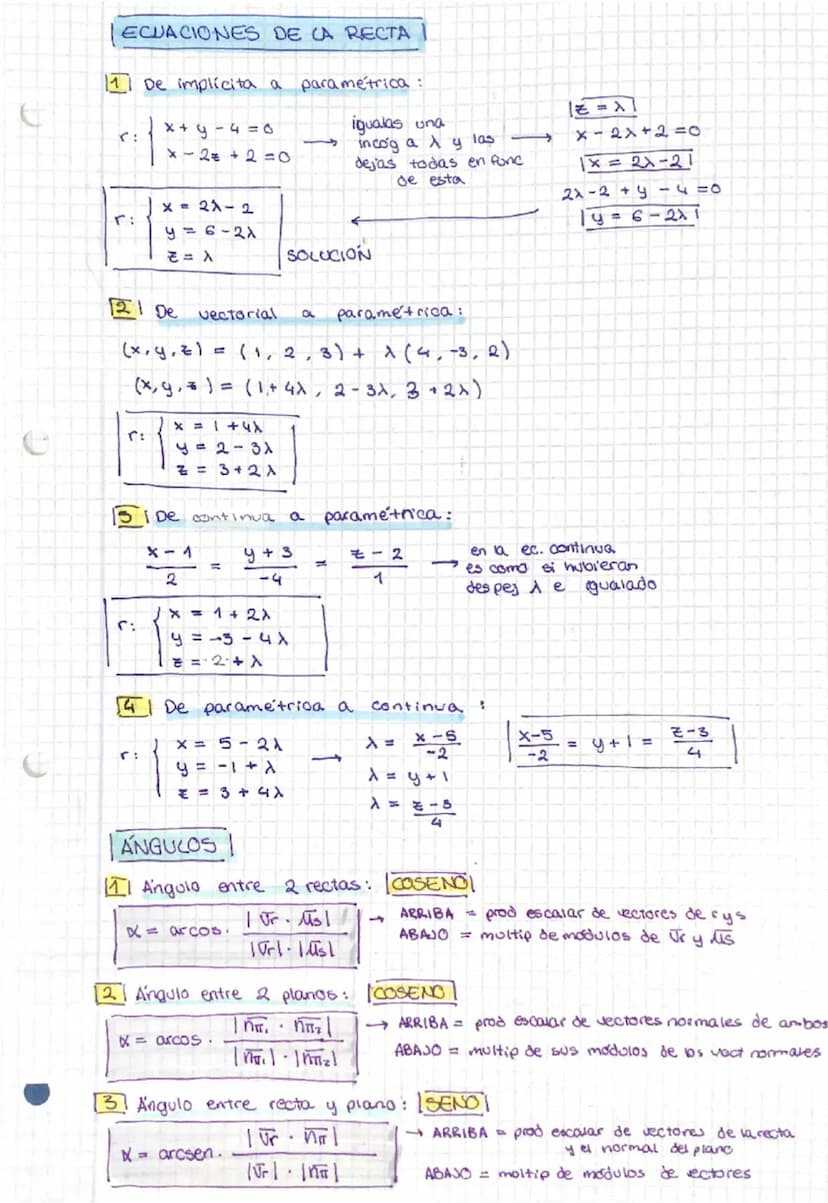 ECUACIONES DE LA RECTA
1 De implícita a paramétrica:
r: { x + y - 4 = 0
x - 2z + 2 = 0
→ igualas una
incóg a λ y las
dejas todas en func
de esta →
z = λ
x - 2λ + 2 = 0
x = 2λ - 2
2λ - 2 + y - 4 = 0
y = 6 - 2λ
r: { x = 2λ - 2
y = 6 - 2λ
z = λ
SOLUCIÓN
2 De vectorial a paramétrica:
(x, y, z) = (1, 2, 3) + λ (4, -3, 2)
(x, y, z) = (1 + 4λ, 2 - 3λ, 3 + 2λ)
r: { x = 1 + 4λ
y = 2 - 3λ
z = 3 + 2λ
3 De continua a paramétrica:
(x - 1)/2 = (y + 3)/-4 = (z - 2)/1 → en la ec. continua
es como si hubieran
despej λ e igualado
r: { x = 1 + 2λ
y = -3 - 4λ
z = 2 + λ
4 De paramétrica a continua:
r: { x = 5 - 2λ
y = -1 + λ
z = 3 + 4λ
→ λ = (x - 5)/-2
λ = y + 1
λ = (z - 3)/4
(x - 5)/-2 = y + 1 = (z - 3)/4
ÁNGULOS
1 Ángulo entre 2 rectas: COSENO
α = arcos. |vr · us| / |vr| · |us|
→ ARRIBA = prod escalar de vectores de r y s
ABAJO = multip de módulos de vr y us
2 Ángulo entre 2 planos: COSENO
α = arcos. |nπ1 · nπ2| / |nπ1| · |nπ2|
→ ARRIBA = prod escalar de vectores normales de ambos
ABAJO = multip de sus módulos de los vect normales
3 Ángulo entre recta y plano: SENO
α = arcsen. |vr · nπ| / |vr| · |nπ|
→ ARRIBA = prod escalar de vectores de la recta
y el normal del plano
ABAJO = moltip de módulos de vectores